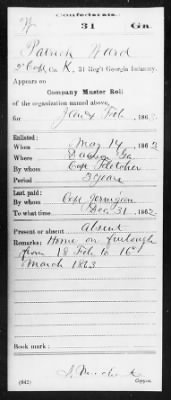 Confederate.
W 31 Ga.
Patrick Ward
Co. K, 31 Reg't Georgia Infantry.
Appears on
Company Muster Roll
of the organization named above,
for Jan & Feb, 1863.
Enlisted:
When May 14, 1862
Where Ga
By whom Capt Fletcher
Period 3 years
Last paid:
By whom Capt Jernigan
To what time Dec 31, 1862.
Present or absent absent
Remarks: Home on furlough
from 18 Feb to 16
March 1863
Book mark:
(642) Copyist.